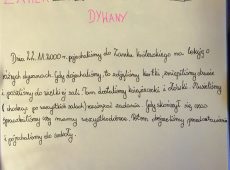 DYWANY
Dnia 22.11.2000 r. pojechaliśmy do Zamku Królewskiego na lekcję o
różnych dywanach. Gdy dojechaliśmy, to zdjęliśmy kurtki, zmieniliśmy obuwie
i poszliśmy do wielkiej sali. Tam dostaliśmy książeczki i ołówki. Musieliśmy
(chodząc po wszystkich salach) rozwiązać zadania. Gdy skończył się czas
sprawdziliśmy czy mamy wszystko dobrze. Potem
i pojechaliśmy do szkoły.